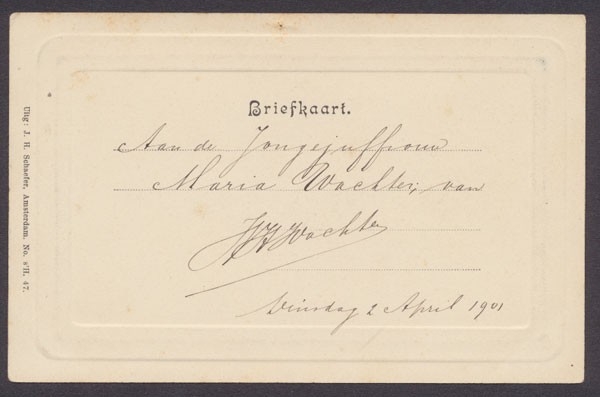 Briefkaart.
Aan de Jongejuffrouw
Maria Wachter, van
HHWachter
Dinsdag 2 April 1901
Uitg: J. H. Schaefer, Amsterdam. No. s'H. 47.